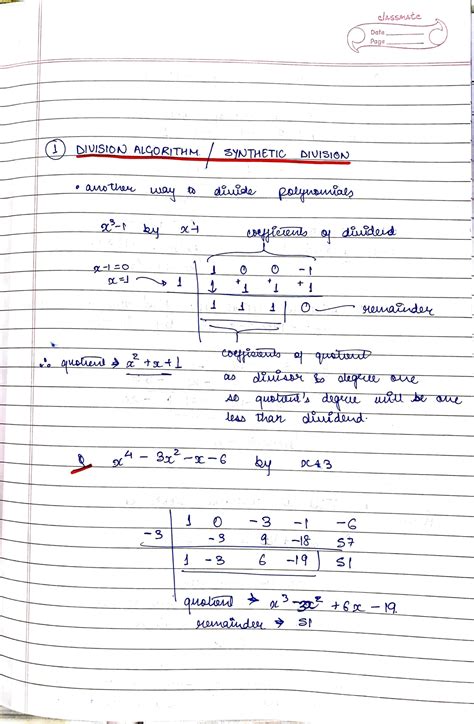 classmate
Date
Page
① DIVISION ALGORITHM / SYNTHETIC DIVISION
• another way to divide polynomials
x³-1 by x-1 coefficients of dividend
x-1=0
x=1 → 1 | 1 0 0 -1
↓ +1 +1 +1
1 1 1 | 0 — remainder
∴ quotient → x² + x + 1
coefficients of quotient
as divisor is degree one
so quotient's degree will be one
less than dividend.
Q x⁴ - 3x² - x - 6 by x+3
-3 | 1 0 -3 -1 -6
-3 9 -18 57
1 -3 6 -19 | 51
quotient → x³ - 3x² + 6x - 19
remainder → 51